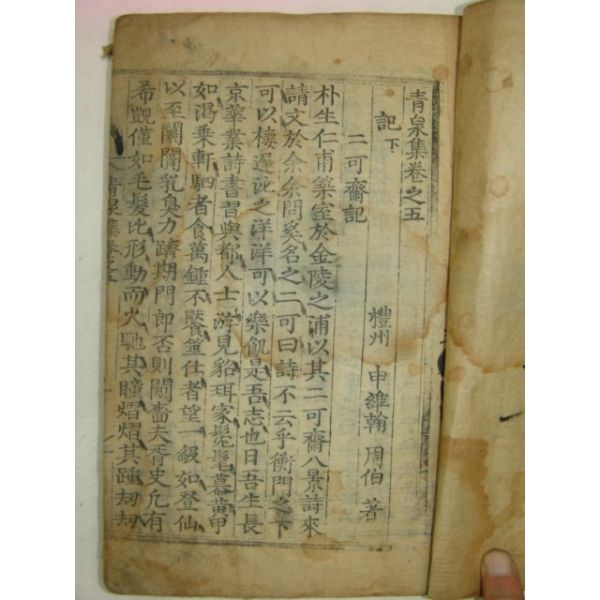 青泉集卷之五
禮州 申維翰 周伯 著
記下
二可齋記
朴生仁甫築室於金陵之浦以其二可齋八景詩來
請文於余余問奚名之二可曰詩不云乎衡門之下
可以棲遲泌之洋洋可以樂飢是吾志也曰吾生長
京華業詩書習與都人士游見貂珥家髧髦慕黃甲
如渴乘軒駟者食萬鍾不饜筮仕者望一級如登仙
以至闤闠乳臭力躋期門郎否則閼嗇夫胥史凡有
希覬僅如毛髮比形動而火馳其瞳熠熠其踵刼刼
青泉集卷之五